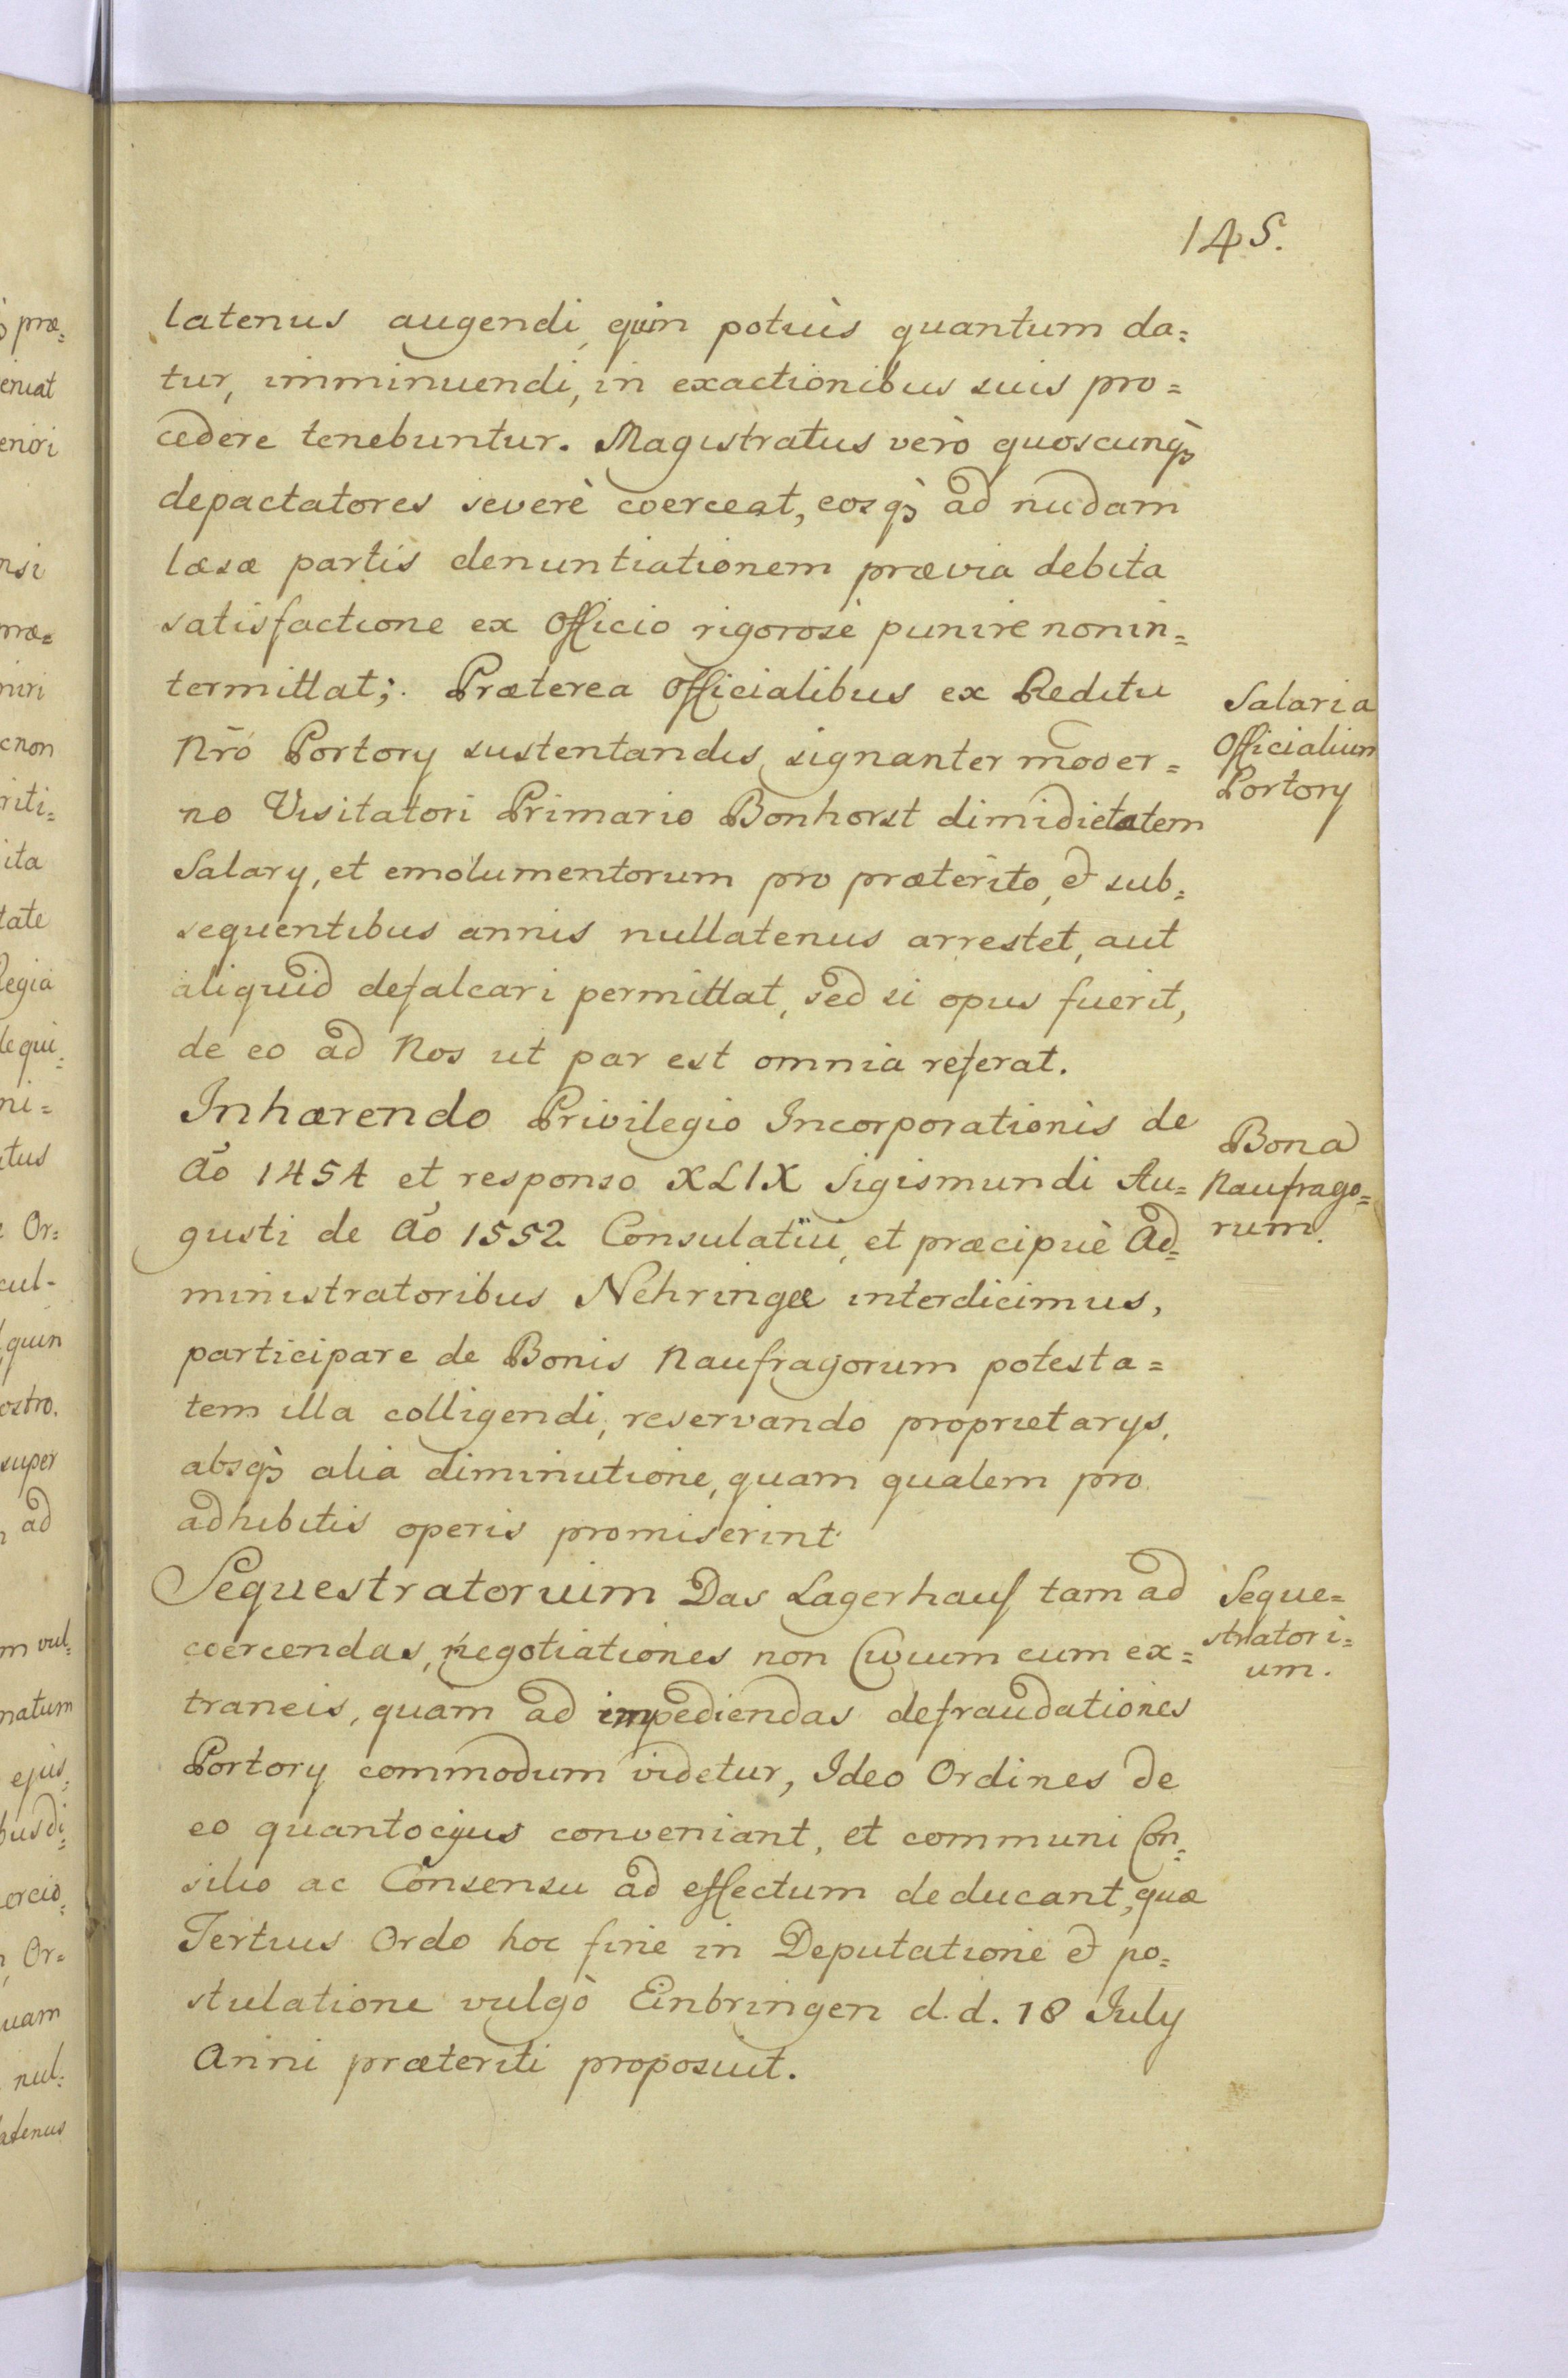 145.
latenus augendi, quin potiùs quantum da=
tur, imminuendi, in exactionibus suis pro=
cedere tenebuntur. Magistratus verò quoscunqꝫ
depactatores severè coerceat, eosqꝫ ad nudam
læsæ partis denuntiationem prævia debita
satisfactione ex Officio rigorosè punire non in=
termittat; Præterea Officialibus ex Reditu
Nrō Portory sustentandis, signanter moder=
no Visitatori Primario Bonhorst dimidietatem
Salary, et emolumentorum pro præterito, & sub=
sequentibus annis nullatenus arrestet, aut
aliquid defalcari permittat, sed si opus fuerit,
de eo ad Nos ut par est omnia referat.
Salaria
Officialium
Portory
Inhærendo Privilegio Incorporationis de
Aō 1454 et responso XLIX Sigismundi Au=
gusti de Aō 1552 Consulatui, et præcipuè Ad=
ministratoribus Nehringæ interdicimus,
participare de Bonis Naufragorum potesta=
tem illa colligendi, reservando proprietarys,
absqꝫ alia diminutione, quam qualem pro
adhibitis operis promiserint
Bona
Naufrago=
rum.
Sequestratorium Das Lagerhauß tam ad
coercendas, negotiationes non Civium cum ex=
traneis, quam ad impediendas defraudationes
Portory commodum videtur, Ideo Ordines de
eo quantocyus conveniant, et communi Con=
silio ac Consensu ad effectum deducant, quæ
Tertius Ordo hoc fine in Deputatione & po=
stulatione vulgò Einbringen d. d. 18 July
Anni præteriti proposuit.
Seque=
stratori=
um.